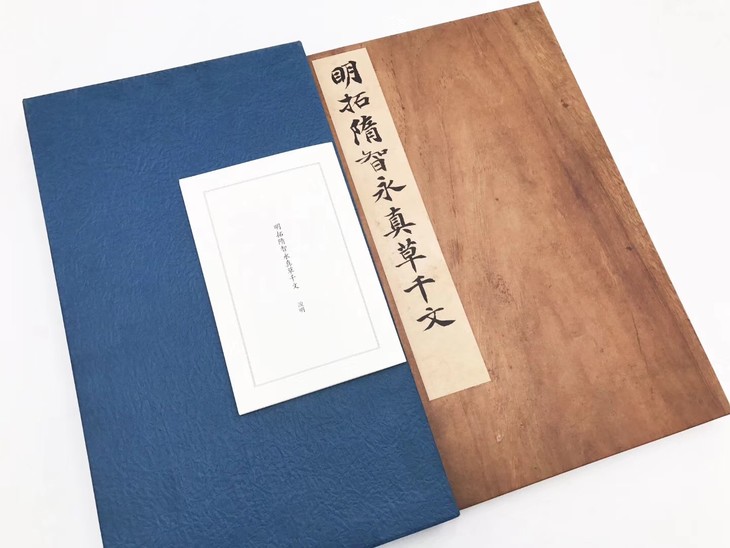 明拓隋智永真草千文
明拓隋智永真草千文 説明